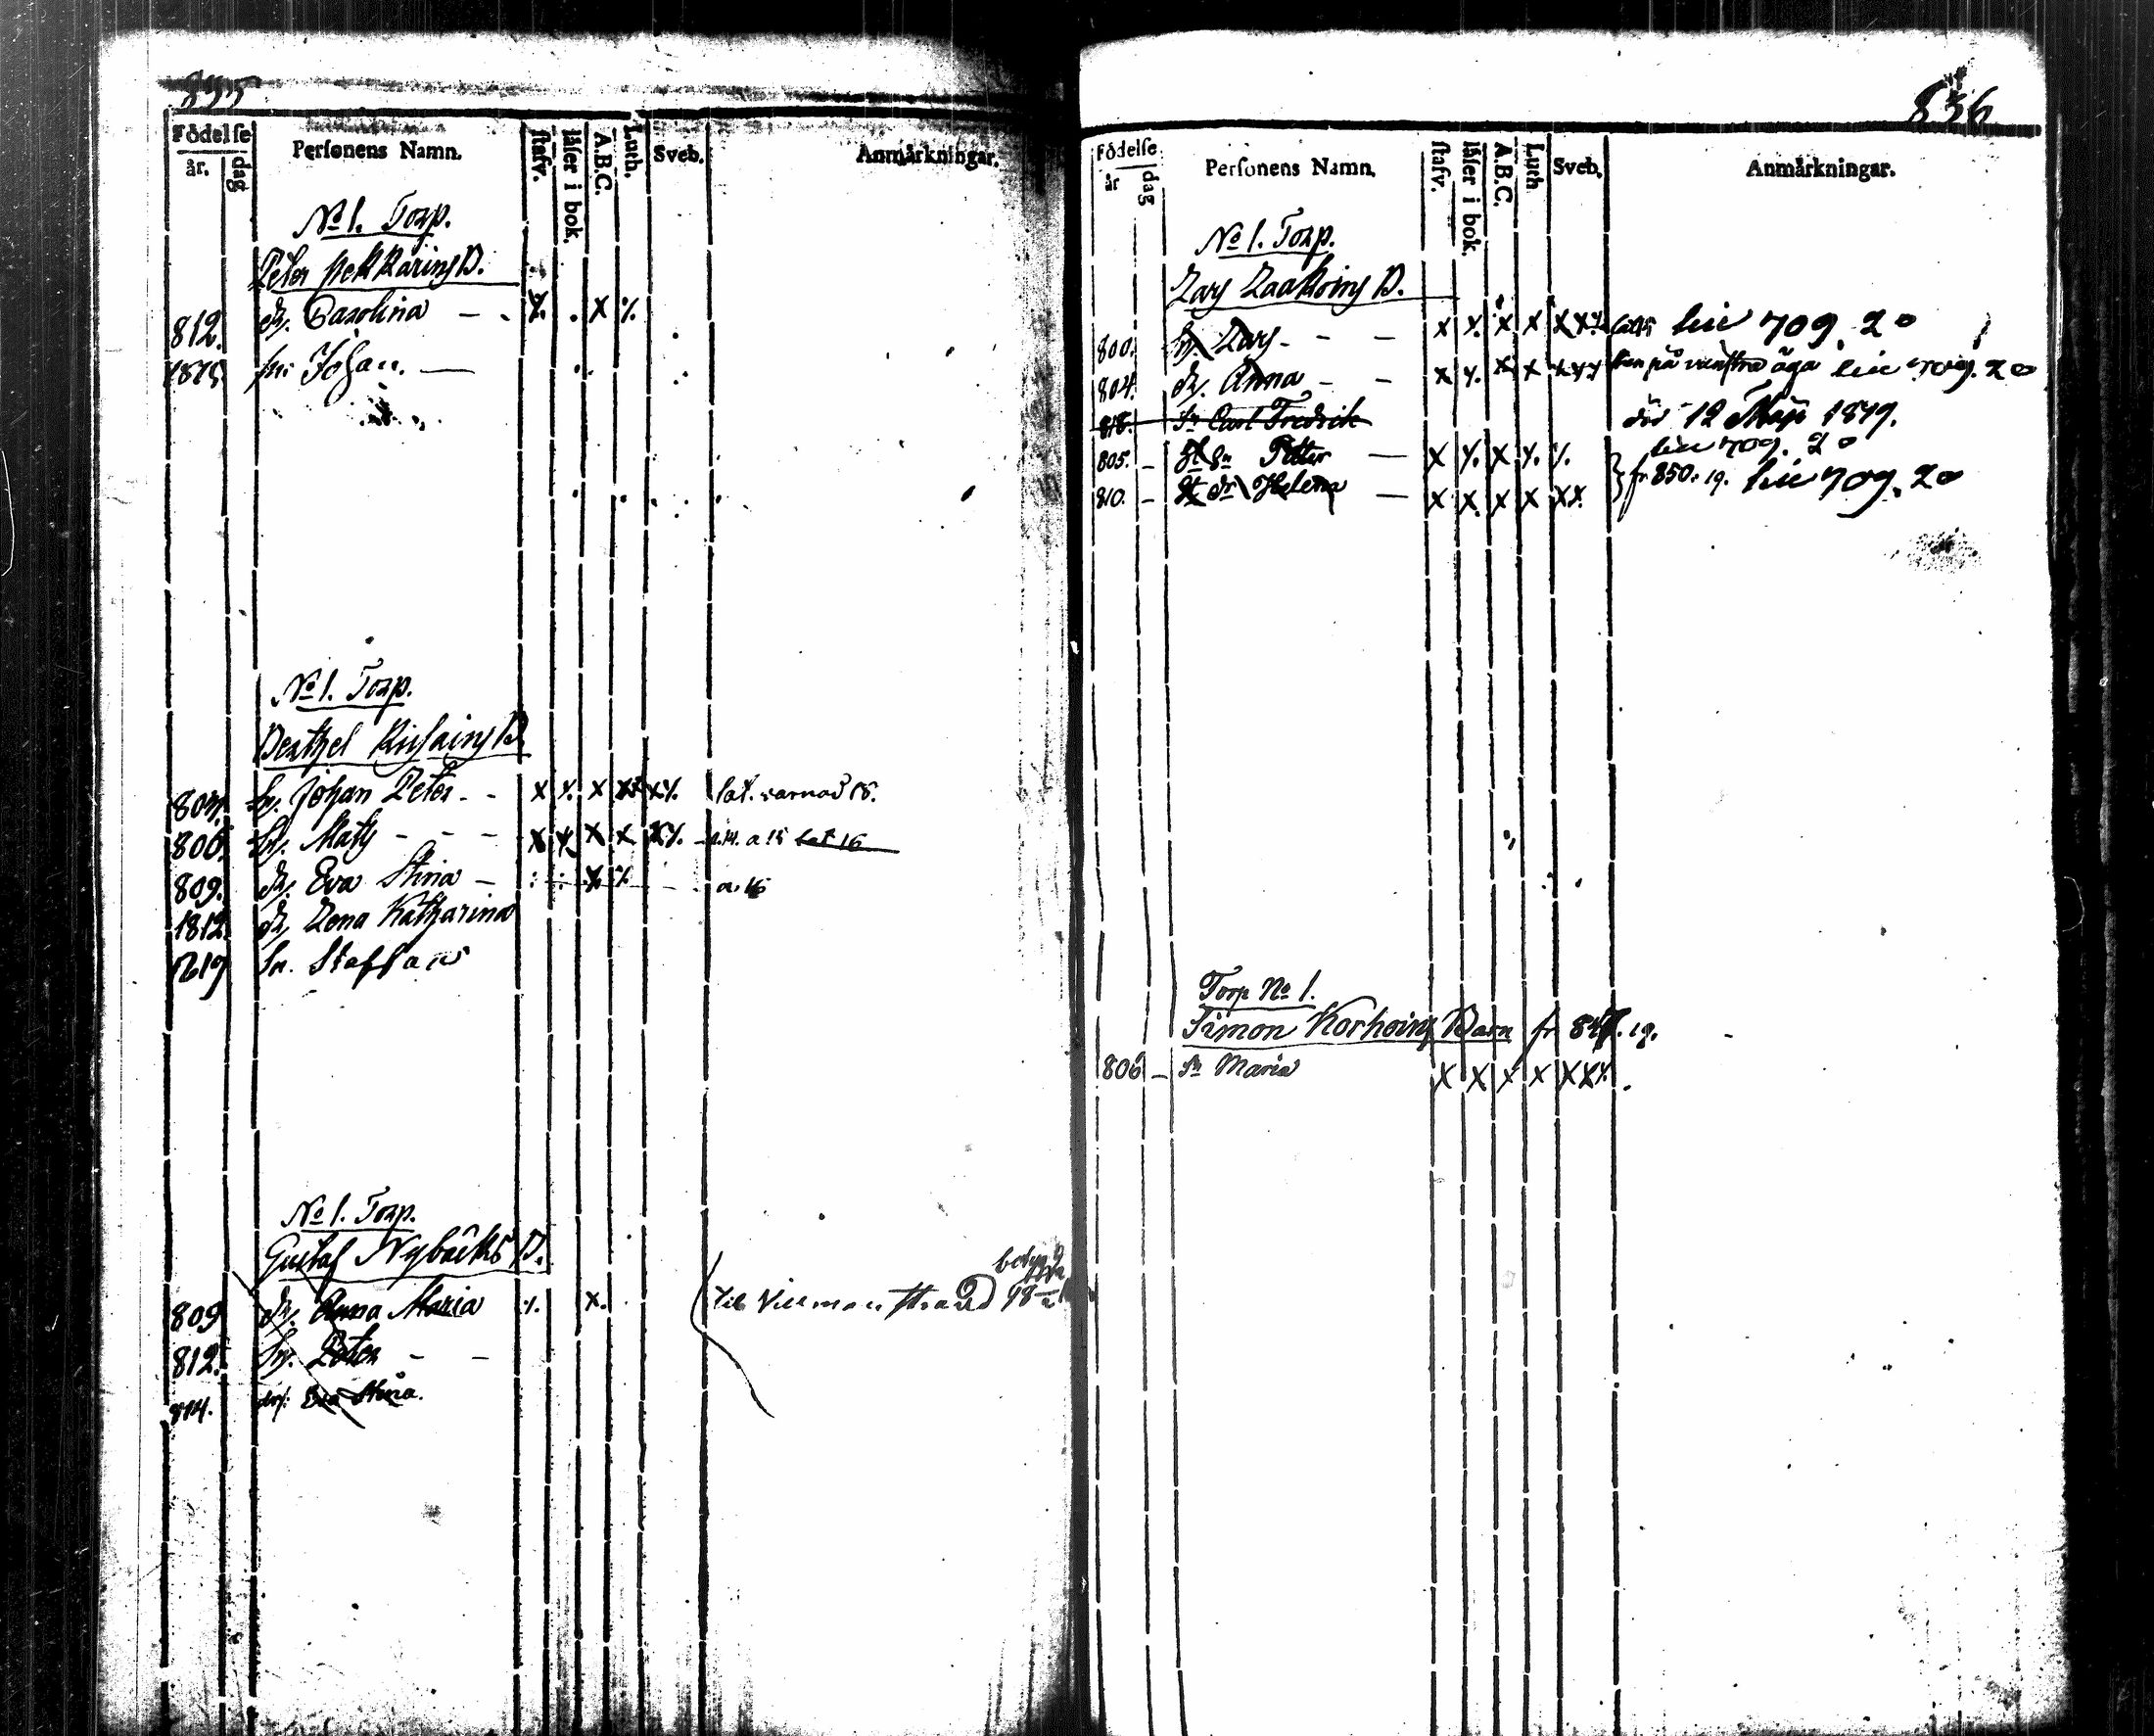 835
Födelse
år. dag
Personens Namn.
stafv.
läser i bok.
A.B.C.
Luth.
Sveb.
Anmärkningar.
No 1. Torp.
Peter B.
812. dr. Carolina - - X . X ⁒
1815 sn: Johan. —
No 1. Torp.
Berthel B.
804. sn. Johan Peter - - X ⁒ X XX X⁒ lat. varnad 15.
806. sn. Mats - - - X ⁒ X X X⁒ a 15 lat 16
809. dr. Eva Stina - : : X ⁒ a. 16
1812. dr. Lena Katharina
1819 Sn. Staffan
No 1. Torp.
Gustaf Nybäcks B.
809 dr. Anna Maria ⁒ X. til Villmanstrand
812. sn. Peter - -
814. dr. Eva Stina.
836
Födelse
år dag
Personens Namn.
stafv.
läser i bok.
A.B.C.
Luth
Sveb.
Anmärkningar.
No 1. Torp.
Lars Laakoins B.
800. sn. Lars - - - X ⁒ X X XX⁒ 709. 20
804. dr. Anna - - X ⁒ X X X⁒⁒ 709. 20
818. Sn Carl Fredrik död 12 Maji 1819.
805. - Sn Petter — X ⁒ X ⁒ ⁒ 709. 20
810. - dr Helena — X X. X X XX. fr 850. 19. 709. 20
Torp No 1.
Simon Korhoins Barn fr 19.
806 - Maria X X X X XX⁒.